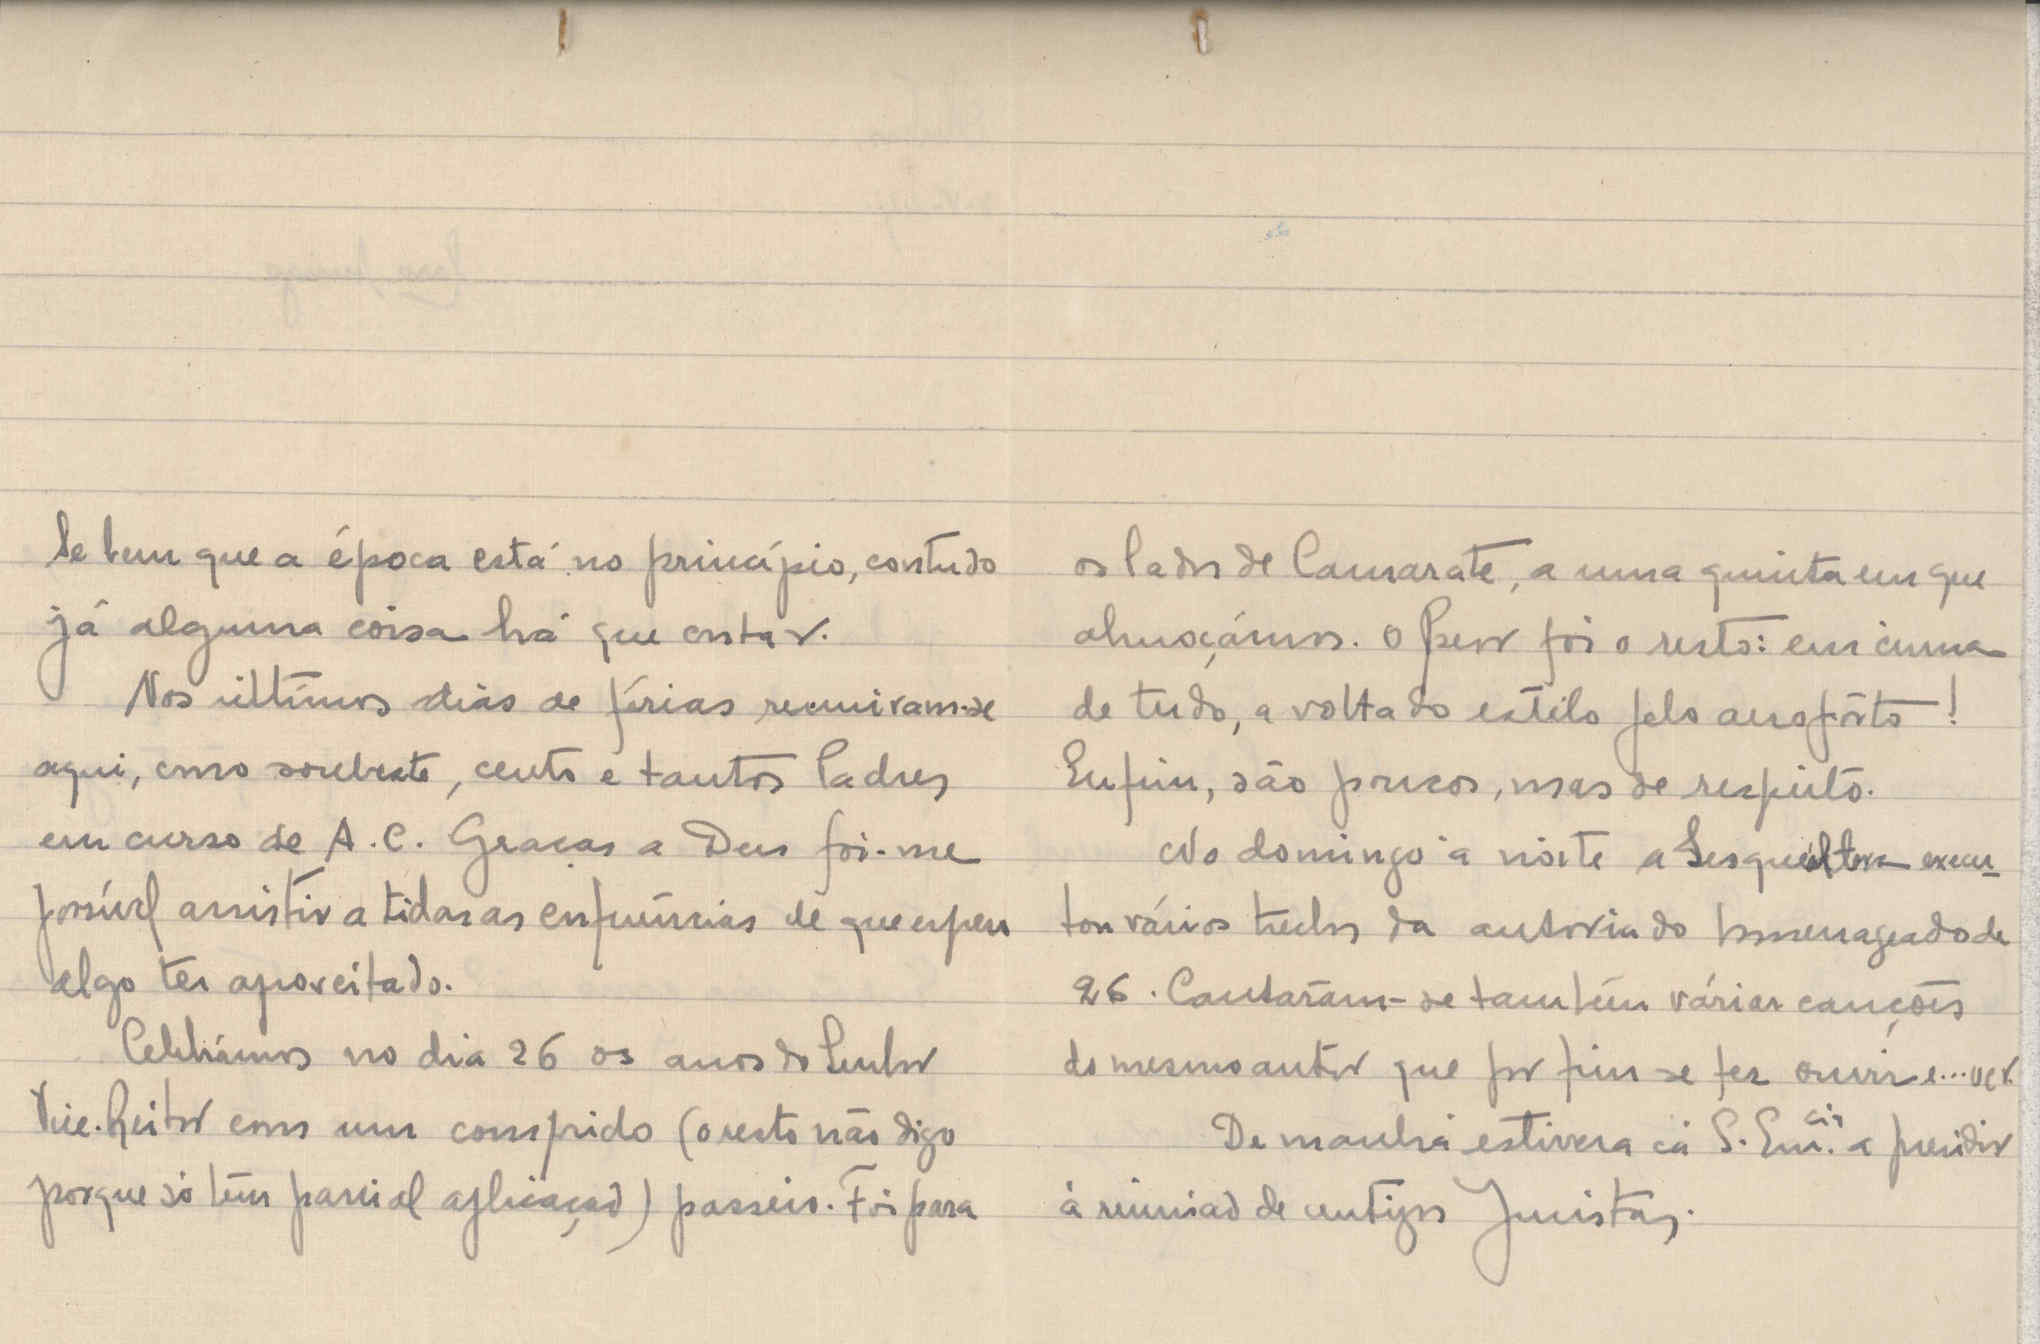 Se bem que a época está no princípio, contudo
já alguma coisa há que contar.
Nos últimos dias de férias reuniram-se
aqui, como soubeste, cento e tantos Padres
em curso de A. C. Graças a Deus foi-me
possível assistir a tôdas as conferências de que espero
algo ter aproveitado.
Celebrámos no dia 26 os anos do Senhor
Vice-Reitor com um comprido (o resto não digo
porque só têm parcial aplicação) passeio. Foi para
os lados de Camarate, a uma quinta em que
almoçámos. O peor foi o resto: em cima
de tudo, a volta do estilo pelo aeropôrto!
Enfim, são poucos, mas de respeito.
No domingo à noite a Sesquiáltera execu-
tou vários trechos da autoria do homenageado de
26. Cantaram-se também várias canções
do mesmo autor que por fim se fez ouvir e... ver.
De manhã estivera cá S. Em.cia a presidir
à reünião de antigos Jucistas.